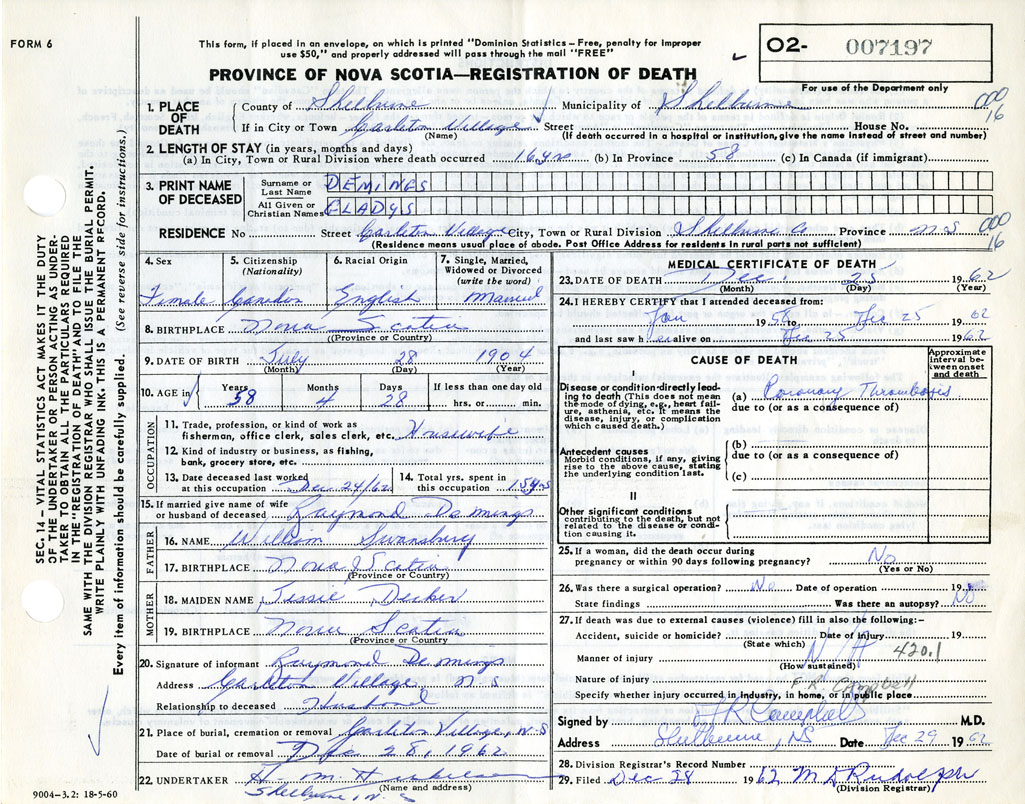 FORM 6
This form, if placed in an envelope, on which is printed "Dominion Statistics – Free, penalty for improper
use $50," and properly addressed will pass through the mail "FREE"
O2- 007197
For use of the Department only
PROVINCE OF NOVA SCOTIA—REGISTRATION OF DEATH
000
16
1. PLACE OF DEATH
County of Shelburne Municipality of Shelburne
If in City or Town Carleton Village Street House No.
(Name) (If death occurred in a hospital or institution, give the name instead of street and number)
2. LENGTH OF STAY (in years, months and days)
(a) In City, Town or Rural Division where death occurred 16 yrs (b) In Province 58 (c) In Canada (if immigrant)
3. PRINT NAME OF DECEASED
Surname or Last Name DEMINGS
All Given or Christian Names GLADYS
RESIDENCE No Street Carleton Village City, Town or Rural Division Shelburne Co Province N S
(Residence means usual place of abode. Post Office Address for residents in rural parts not sufficient)
000
16
SEC. 14 – VITAL STATISTICS ACT MAKES IT THE DUTY
OF THE UNDERTAKER OR PERSON ACTING AS UNDER-
TAKER TO OBTAIN ALL THE PARTICULARS REQUIRED
IN THE "REGISTRATION OF DEATH" AND TO FILE THE
SAME WITH THE DIVISION REGISTRAR WHO SHALL ISSUE THE BURIAL PERMIT.
WRITE PLAINLY WITH UNFADING INK. THIS IS A PERMANENT RECORD.
Every item of information should be carefully supplied. (See reverse side for instructions.)
4. Sex
Female
5. Citizenship
(Nationality)
Canadian
6. Racial Origin
English
7. Single, Married,
Widowed or Divorced
(write the word)
Married
8. BIRTHPLACE Nova Scotia
(Province or Country)
9. DATE OF BIRTH July 28 1904
(Month) (Day) (Year)
10. AGE in
Years 58
Months 4
Days 28
If less than one day old
hrs. or min.
OCCUPATION
11. Trade, profession, or kind of work as
fisherman, office clerk, sales clerk, etc. Housewife
12. Kind of industry or business, as fishing,
bank, grocery store, etc.
13. Date deceased last worked
at this occupation Dec 24/62
14. Total yrs. spent in
this occupation
15. If married give name of wife
or husband of deceased Raymond Demings
FATHER
16. NAME William Swansburg
17. BIRTHPLACE Nova Scotia
(Province or Country)
MOTHER
18. MAIDEN NAME Jessie Decker
19. BIRTHPLACE Nova Scotia
(Province or Country)
20. Signature of informant Raymond Demings
Address Carleton Village N S
Relationship to deceased Husband
21. Place of burial, cremation or removal Carleton Village, N-S
Date of burial or removal Dec 28, 1962
22. UNDERTAKER H. M.
(Name and address)
Shelburne, N. S
9004–3.2: 18-5-60
MEDICAL CERTIFICATE OF DEATH
23. DATE OF DEATH Dec 25 1962
(Month) (Day) (Year)
24. I HEREBY CERTIFY that I attended deceased from:
Jan 1958 to Dec 25 1962
and last saw her alive on Dec 25 1962
CAUSE OF DEATH
Approximate
interval be-
tween onset
and death
I
Disease or condition directly lead-
ing to death (This does not mean
the mode of dying, e.g., heart fail-
ure, asthenia, etc. It means the
disease, injury, or complication
which caused death.)
(a) Coronary Thrombosis
due to (or as a consequence of)
Antecedent causes
Morbid conditions, if any, giving
rise to the above cause, stating
the underlying condition last.
(b)
due to (or as a consequence of)
(c)
II
Other significant conditions
contributing to the death, but not
related to the disease or condi-
tion causing it.
25. If a woman, did the death occur during
pregnancy or within 90 days following pregnancy? No
(Yes or No)
26. Was there a surgical operation? No Date of operation 19
State findings Was there an autopsy? No
27. If death was due to external causes (violence) fill in also the following:–
Accident, suicide or homicide? Date of injury 19
(State which)
Manner of injury N A 420.1
(How sustained)
Nature of injury F.R. Campbell
Specify whether injury occurred in industry, in home, or in public place
Signed by F R Campbell M.D.
Address Shelburne, NS Date Dec 29 1962
28. Division Registrar's Record Number
29. Filed Dec 28 1962 M D Rudolph
(Division Registrar)